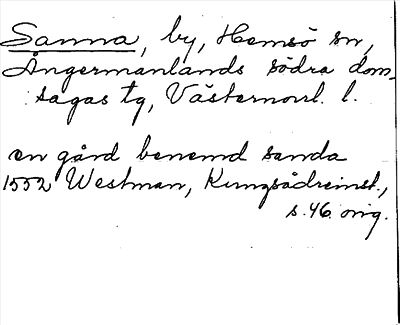 Sanna, by, Hemsö sn,
Ångermanlands södra dom-
sagas tg, Västernorrl. l.
en gård benemd sanda
1552 Westman, Kungsådreinst.,
s. 46. orig.